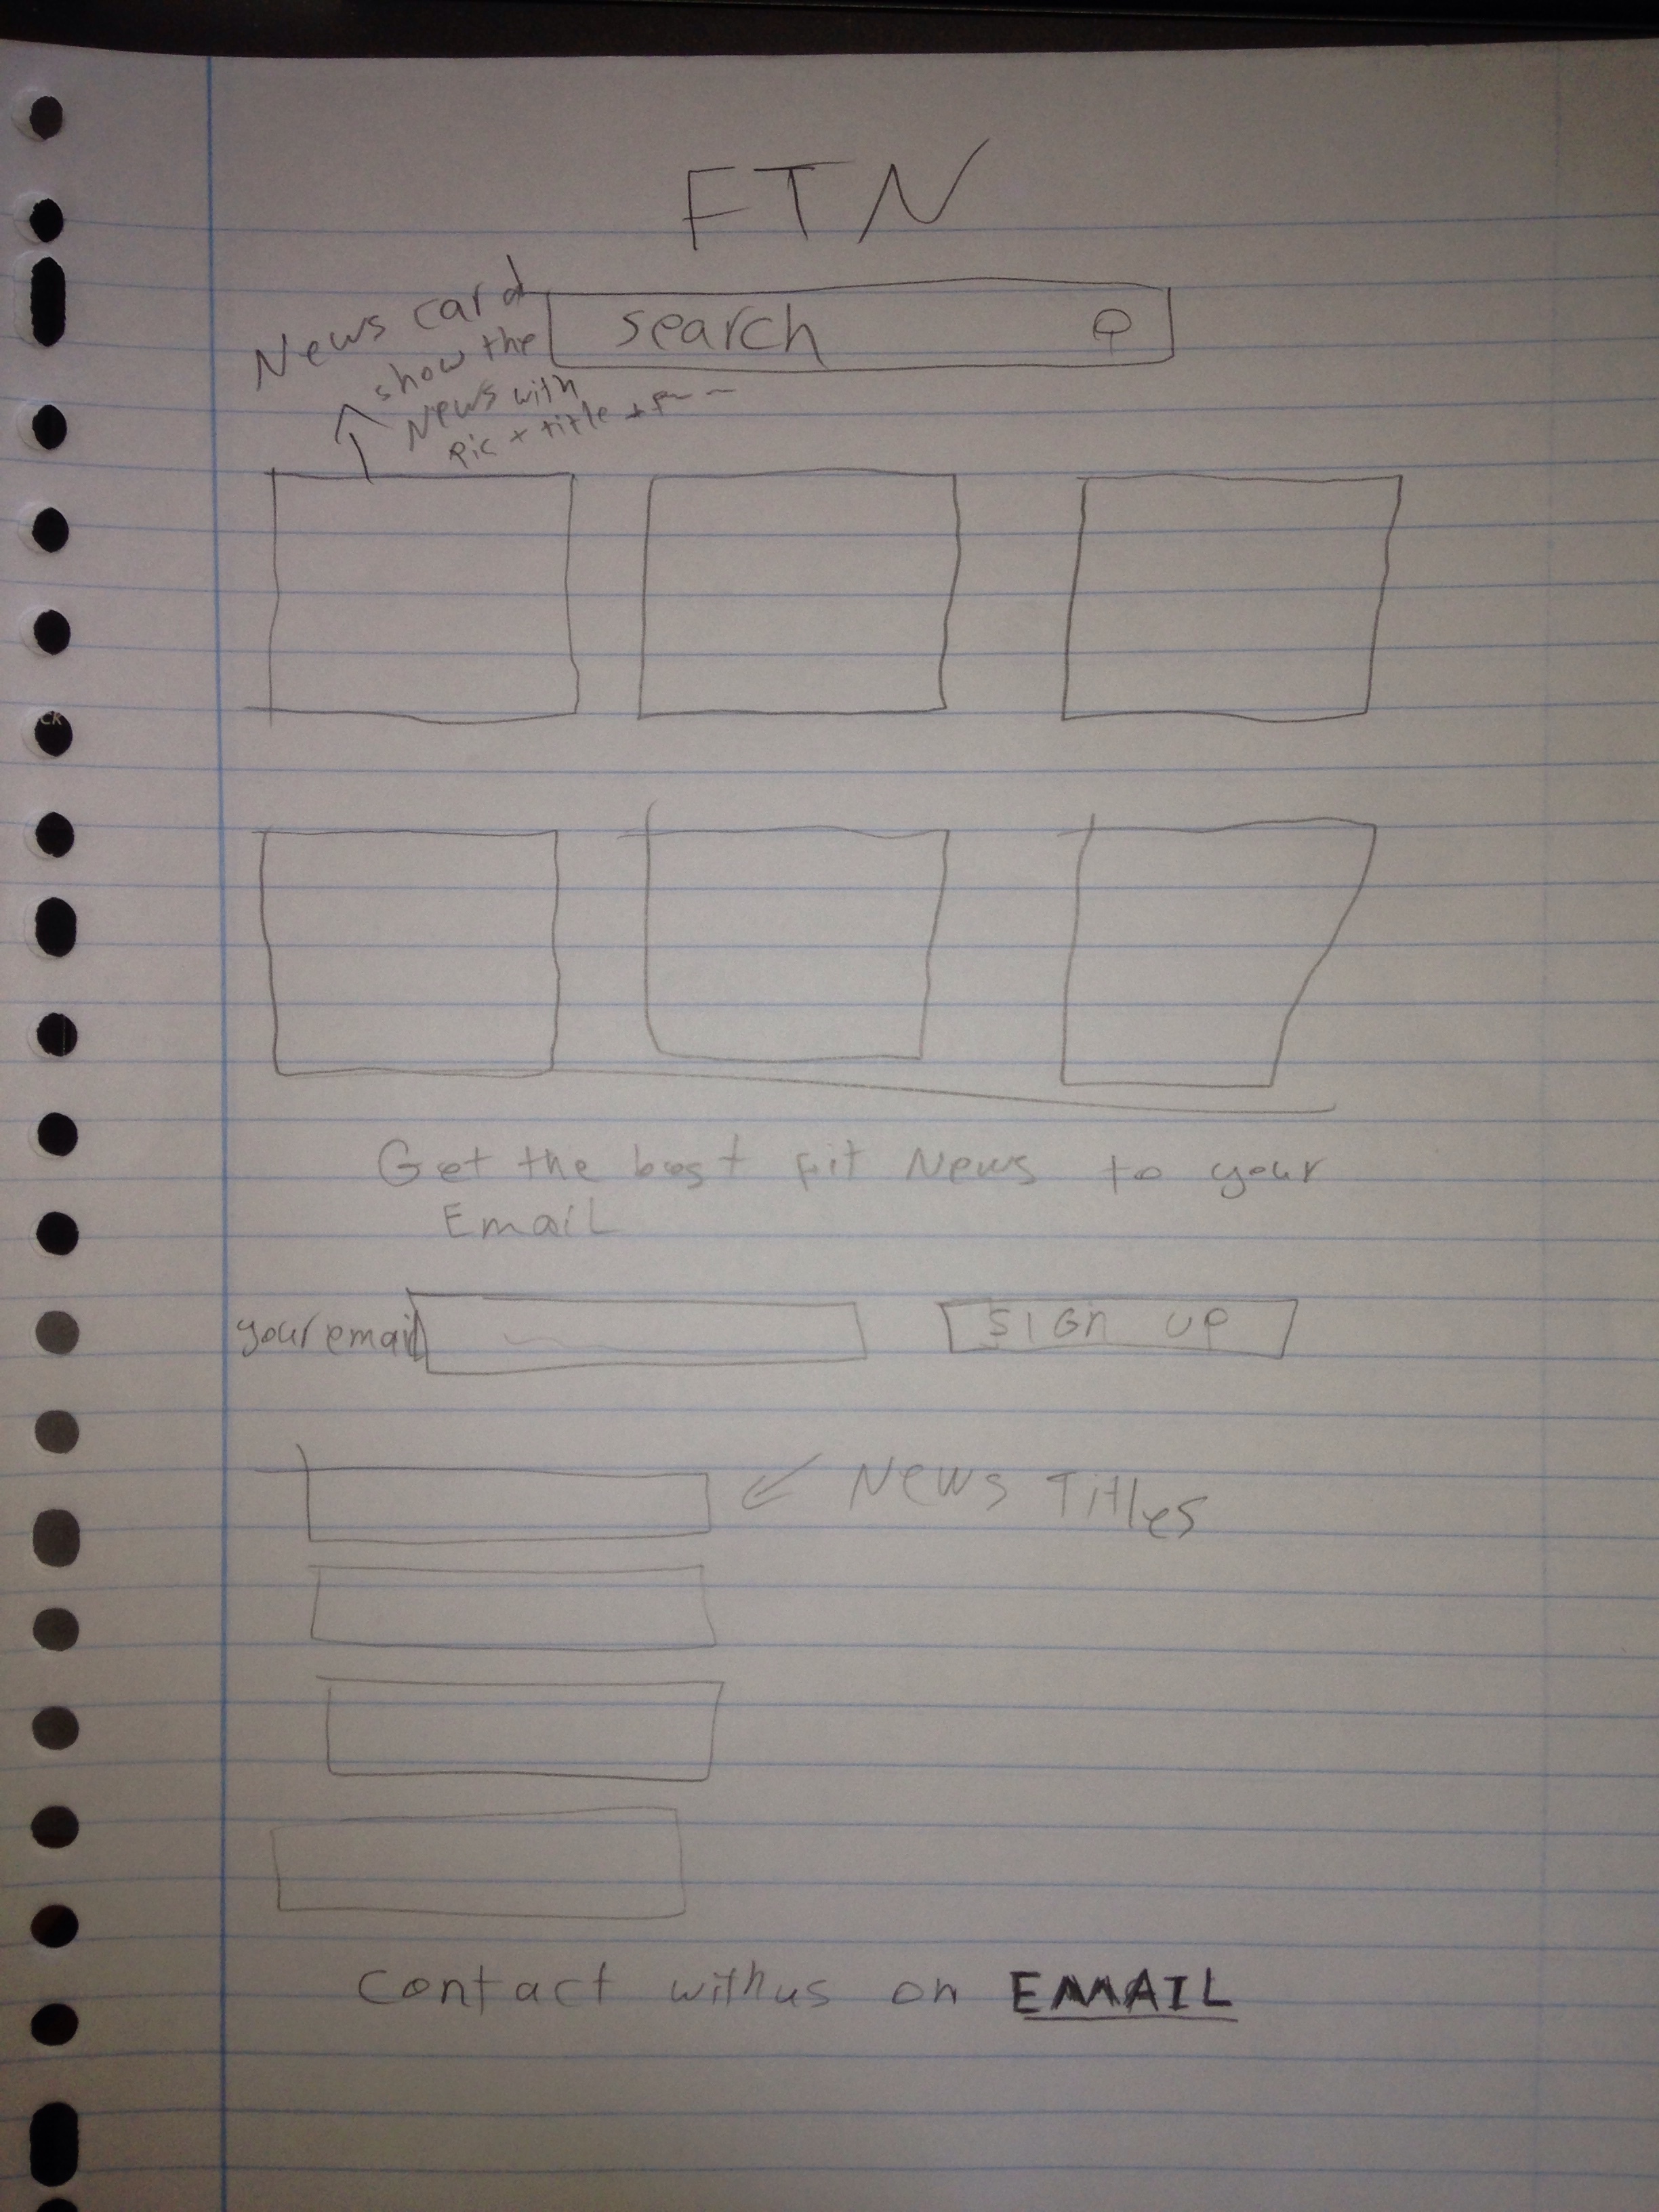 FTN
News card
search
show the
News with
pic + title +
Get the best fit News to your
Email
your email
sign up
News Titles
contact with us on EMAIL
CK